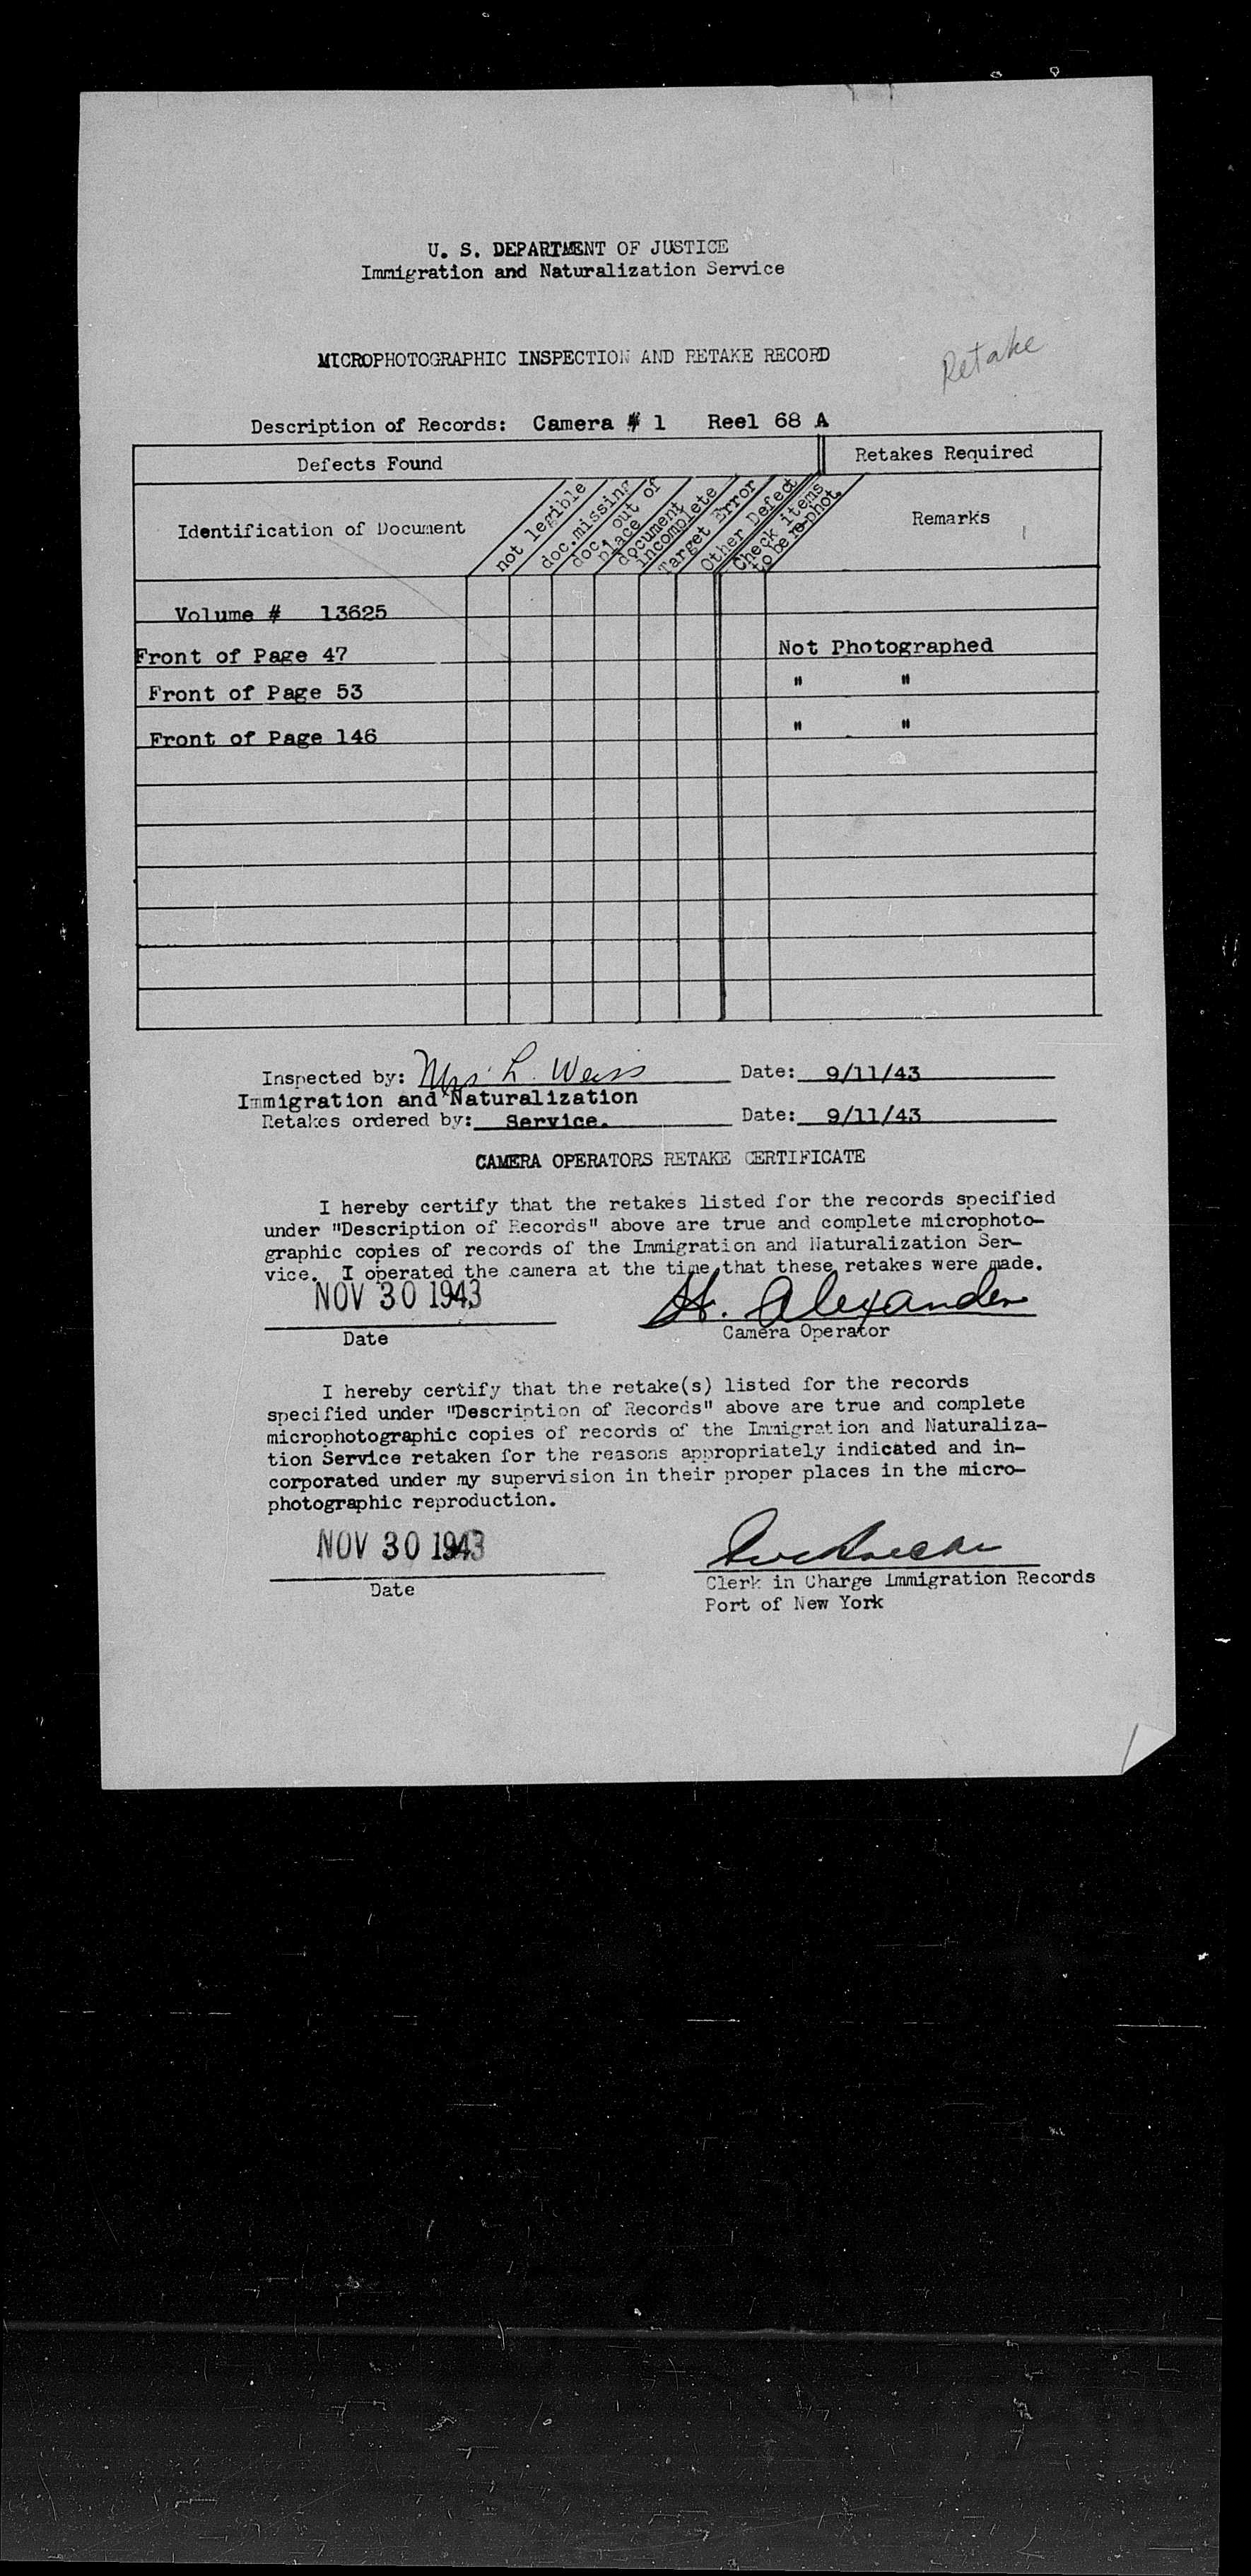 U. S. DEPARTMENT OF JUSTICE
Immigration and Naturalization Service
MICROPHOTOGRAPHIC INSPECTION AND RETAKE RECORD
Retake
Description of Records: Camera # 1 Reel 68 A
Defects Found
Retakes Required
Identification of Document
not legible
doc.missing
doc. out of
place
document
incomplete
Target Error
Other Defect
Check items
to be re-phot.
Remarks
Volume # 13625
Front of Page 47 Not Photographed
Front of Page 53 " "
Front of Page 146 " "
Inspected by: Mrs. L. Weiss Date: 9/11/43
Immigration and Naturalization
Retakes ordered by: Service. Date: 9/11/43
CAMERA OPERATORS RETAKE CERTIFICATE
I hereby certify that the retakes listed for the records specified
under "Description of Records" above are true and complete microphoto-
graphic copies of records of the Immigration and Naturalization Ser-
vice. I operated the camera at the time that these retakes were made.
NOV 30 1943 H. Alexander
Date Camera Operator
I hereby certify that the retake(s) listed for the records
specified under "Description of Records" above are true and complete
microphotographic copies of records of the Immigration and Naturaliza-
tion Service retaken for the reasons appropriately indicated and in-
corporated under my supervision in their proper places in the micro-
photographic reproduction.
NOV 30 1943
Date
Clerk in Charge Immigration Records
Port of New York